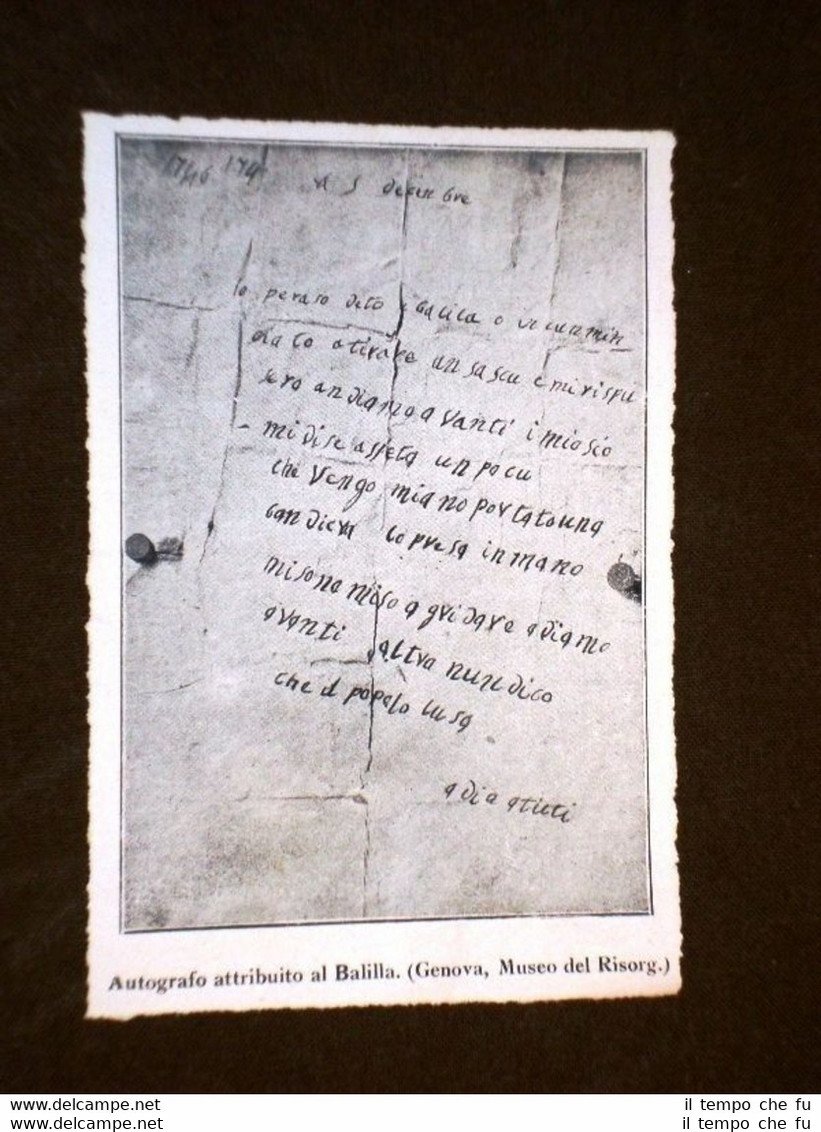 1746 174
A 5 decenbre
Io peraso deto balila o incumin
ciato atirare an sascu e mi rispu
sero andiamo avanti i mio sio
mi dise aspeta un pocu
che vengo miano portato una
bandiera lo presa in mano
mi sono miso a gridare adiamo
avanti altra nun dico
che il popolo lusa
adia atuti
Autografo attribuito al Balilla. (Genova, Museo del Risorg.)
More images at www.delcampe.net
il tempo che fu
More images at www.delcampe.net
il tempo che fu